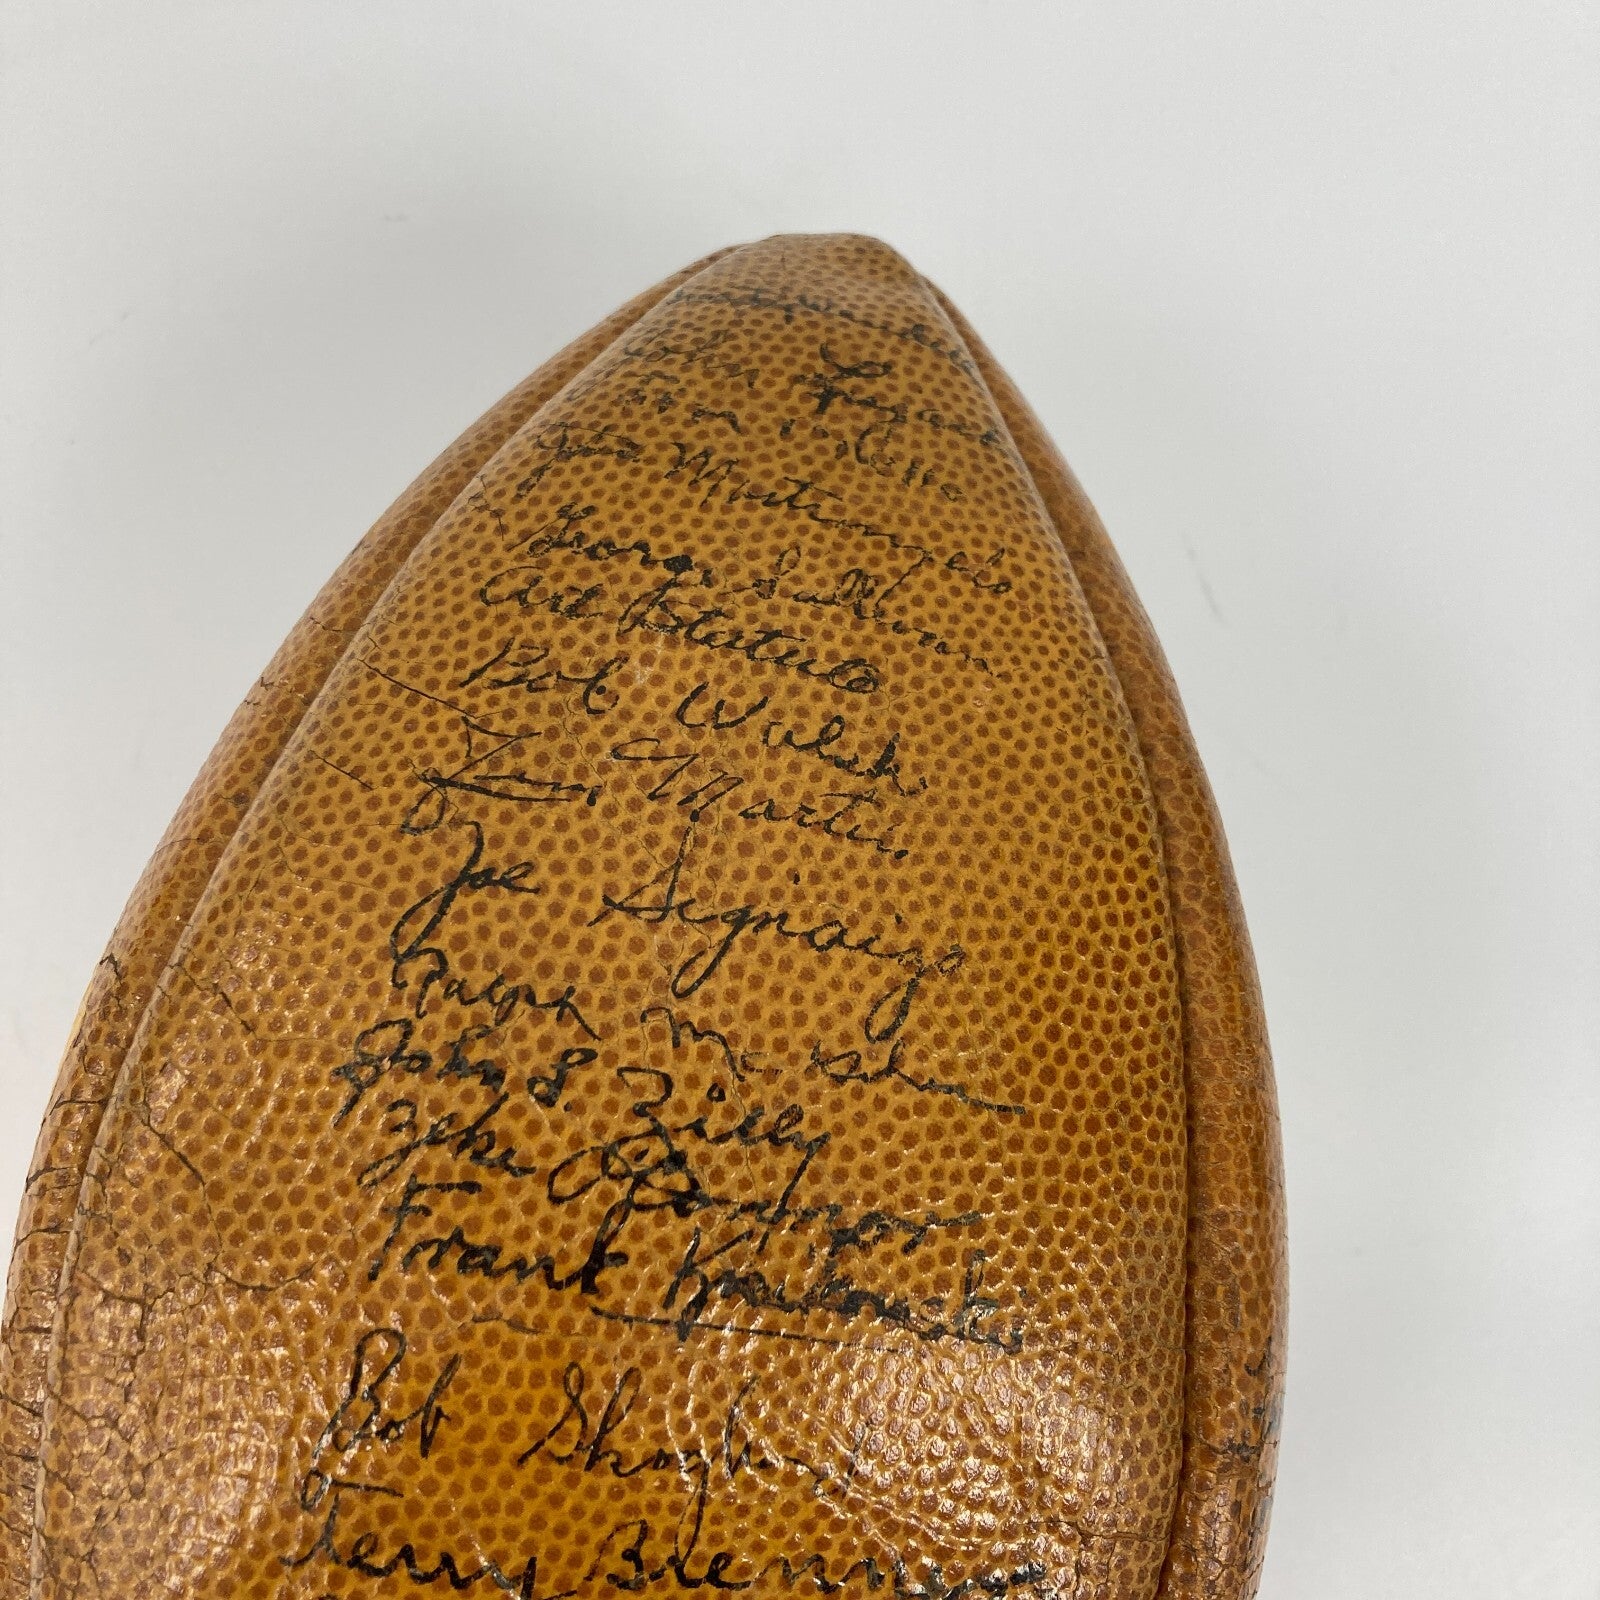 John
John Mastrangelo
George Sullivan
Art Statuto
Bob Walsh
Jim Martin
Joe Signaigo
Ralph McGehee
John L. Zilly
Zeke O'Connor
Frank Kosikowski
Bob Skoglund
Terry Brennan